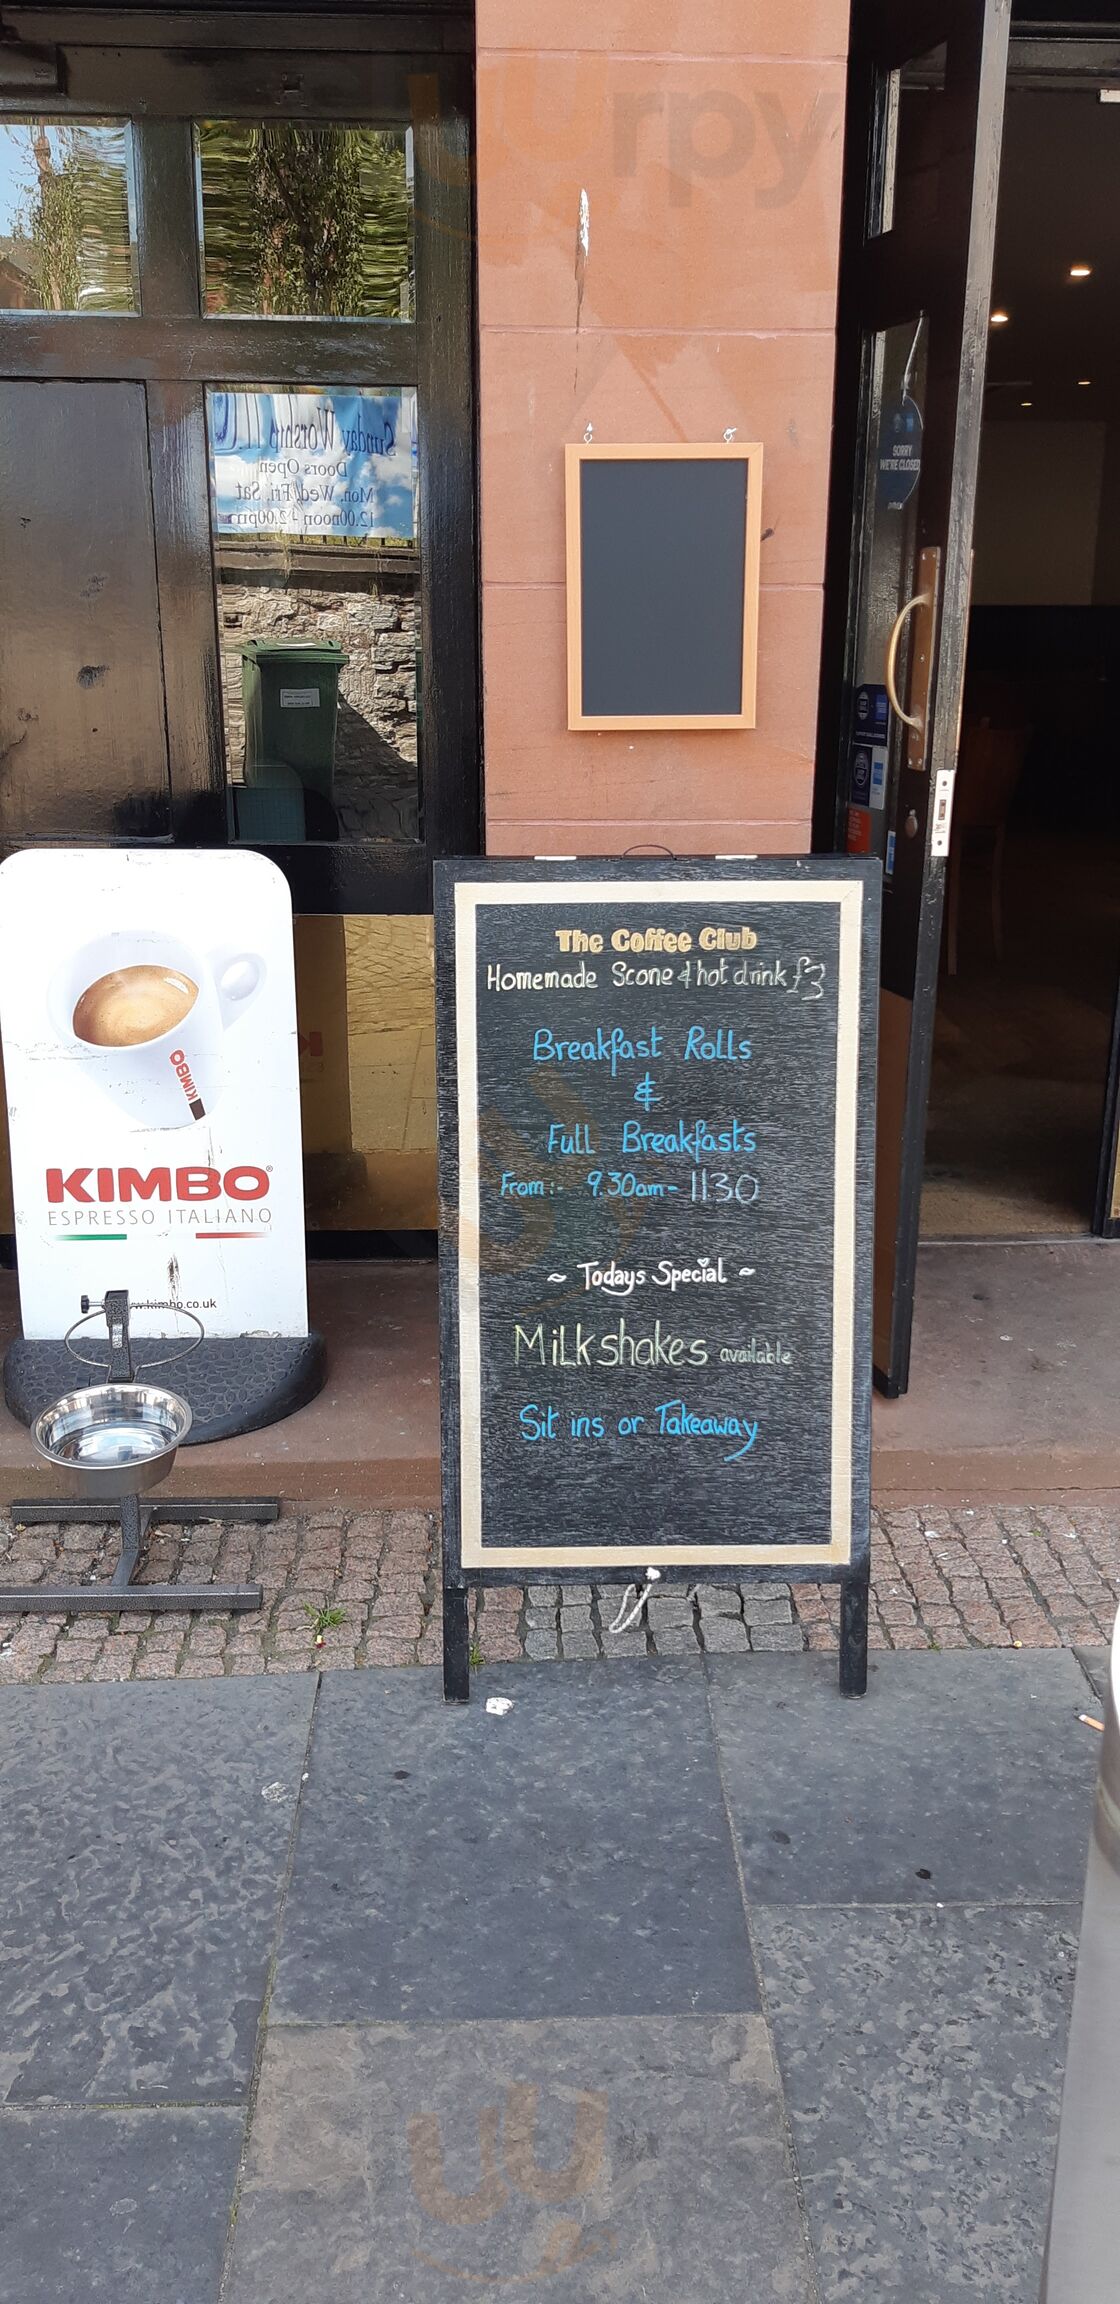 urpy
Sunday Worship 11.
Doors Open
Mon, Wed, Fri, Sat
12.00noon - 2.00pm
SORRY
WE'RE CLOSED
KIMBO
KIMBO
ESPRESSO ITALIANO
www.kimbo.co.uk
The Coffee Club
Homemade Scone & hot drink £3
Breakfast Rolls
&
Full Breakfasts
From:- 9.30am- 1130
~ Todays Special ~
Milkshakes available
Sit ins or Takeaway